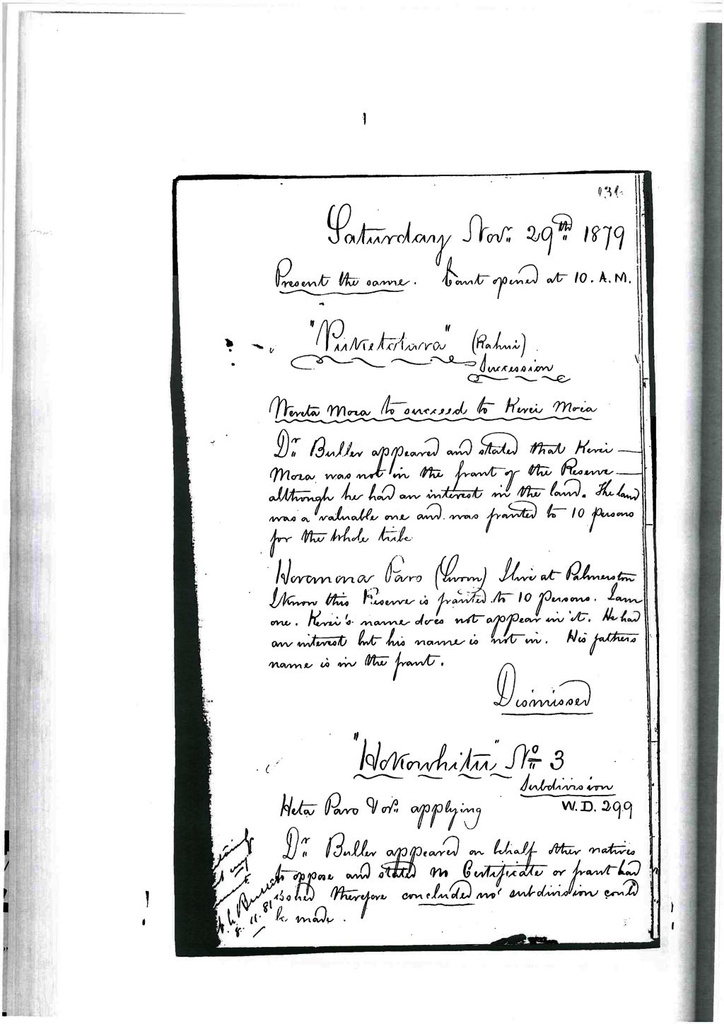 Saturday Nov: 29th 1879
Present the same. Court opened at 10. A.M.
"Puketotara" (Rahui)
Succession
Wereta Moea to succeed to Kerei Moea
Dr. Buller appeared and stated that Kerei
Moea was not in the grant of the Reserve
although he had an interest in the land. The land
was a valuable one and was granted to 10 persons
for the whole tribe
Horomona Paro (Sworn) I live at Palmerston
I know this Reserve is granted to 10 persons. I am
one. Kerei's name does not appear in it. He had
an interest but his name is not in. His father's
name is in the grant.
Dismissed
"Hokowhitu" No 3
Subdivision
Heta Paro & ors: applying W.D. 299
Dr. Buller appeared on behalf other natives
to oppose and stated no Certificate or grant had
issued therefore concluded no subdivision could
be made.
8.11.81